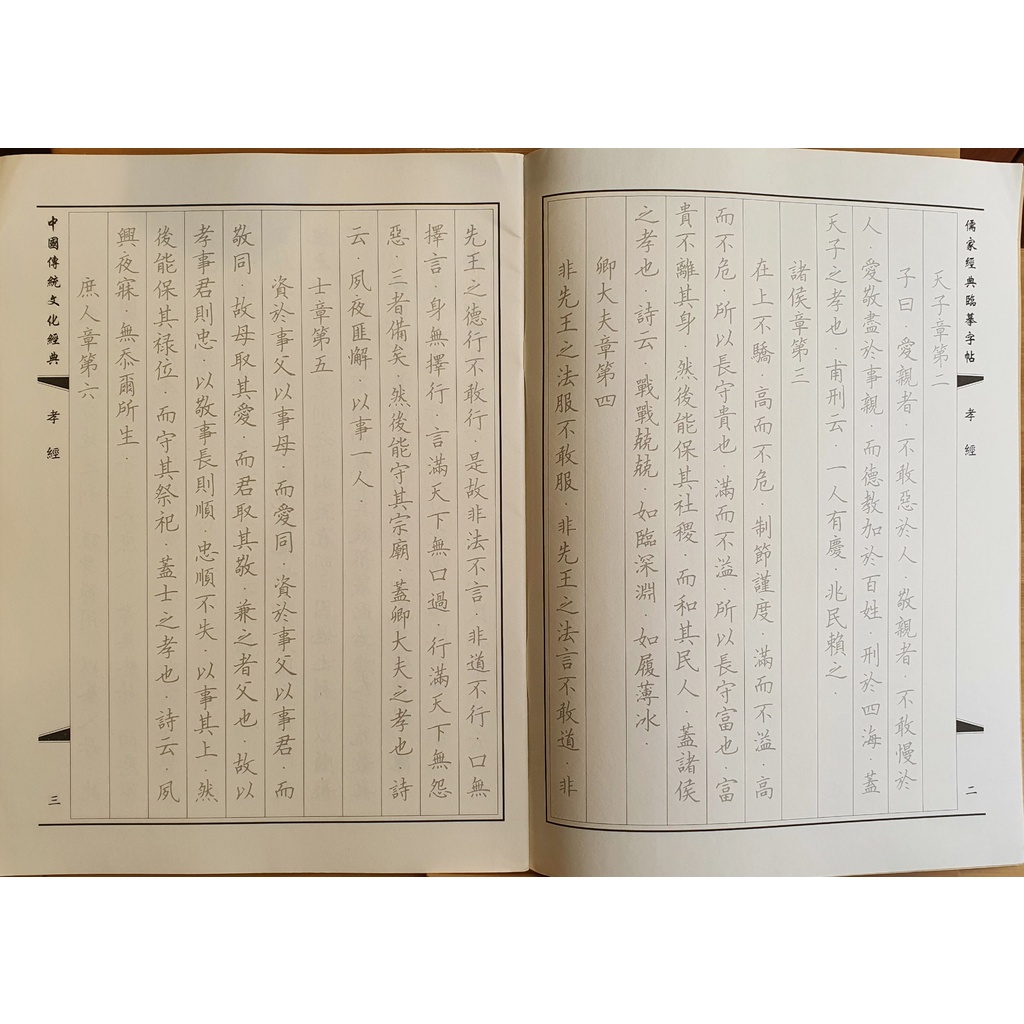 儒家經典臨摹字帖
孝經
二
天子章第二
子曰．愛親者．不敢惡於人．敬親者．不敢慢於
人．愛敬盡於事親．而德教加於百姓．刑於四海．蓋
天子之孝也．甫刑云．一人有慶．兆民賴之．
諸侯章第三
在上不驕．高而不危．制節謹度．滿而不溢．高
而不危．所以長守貴也．滿而不溢．所以長守富也．富
貴不離其身．然後能保其社稷．而和其民人．蓋諸侯
之孝也．詩云．戰戰兢兢．如臨深淵．如履薄冰．
卿大夫章第四
非先王之法服不敢服．非先王之法言不敢道．非
先王之德行不敢行．是故非法不言．非道不行．口無
擇言．身無擇行．言滿天下無口過．行滿天下無怨
惡．三者備矣．然後能守其宗廟．蓋卿大夫之孝也．詩
云．夙夜匪懈．以事一人．
士章第五
資於事父以事母．而愛同．資於事父以事君．而
敬同．故母取其愛．而君取其敬．兼之者父也．故以
孝事君則忠．以敬事長則順．忠順不失．以事其上．然
後能保其祿位．而守其祭祀．蓋士之孝也．詩云．夙
興夜寐．無忝爾所生．
庶人章第六
中國傳統文化經典
孝經
三